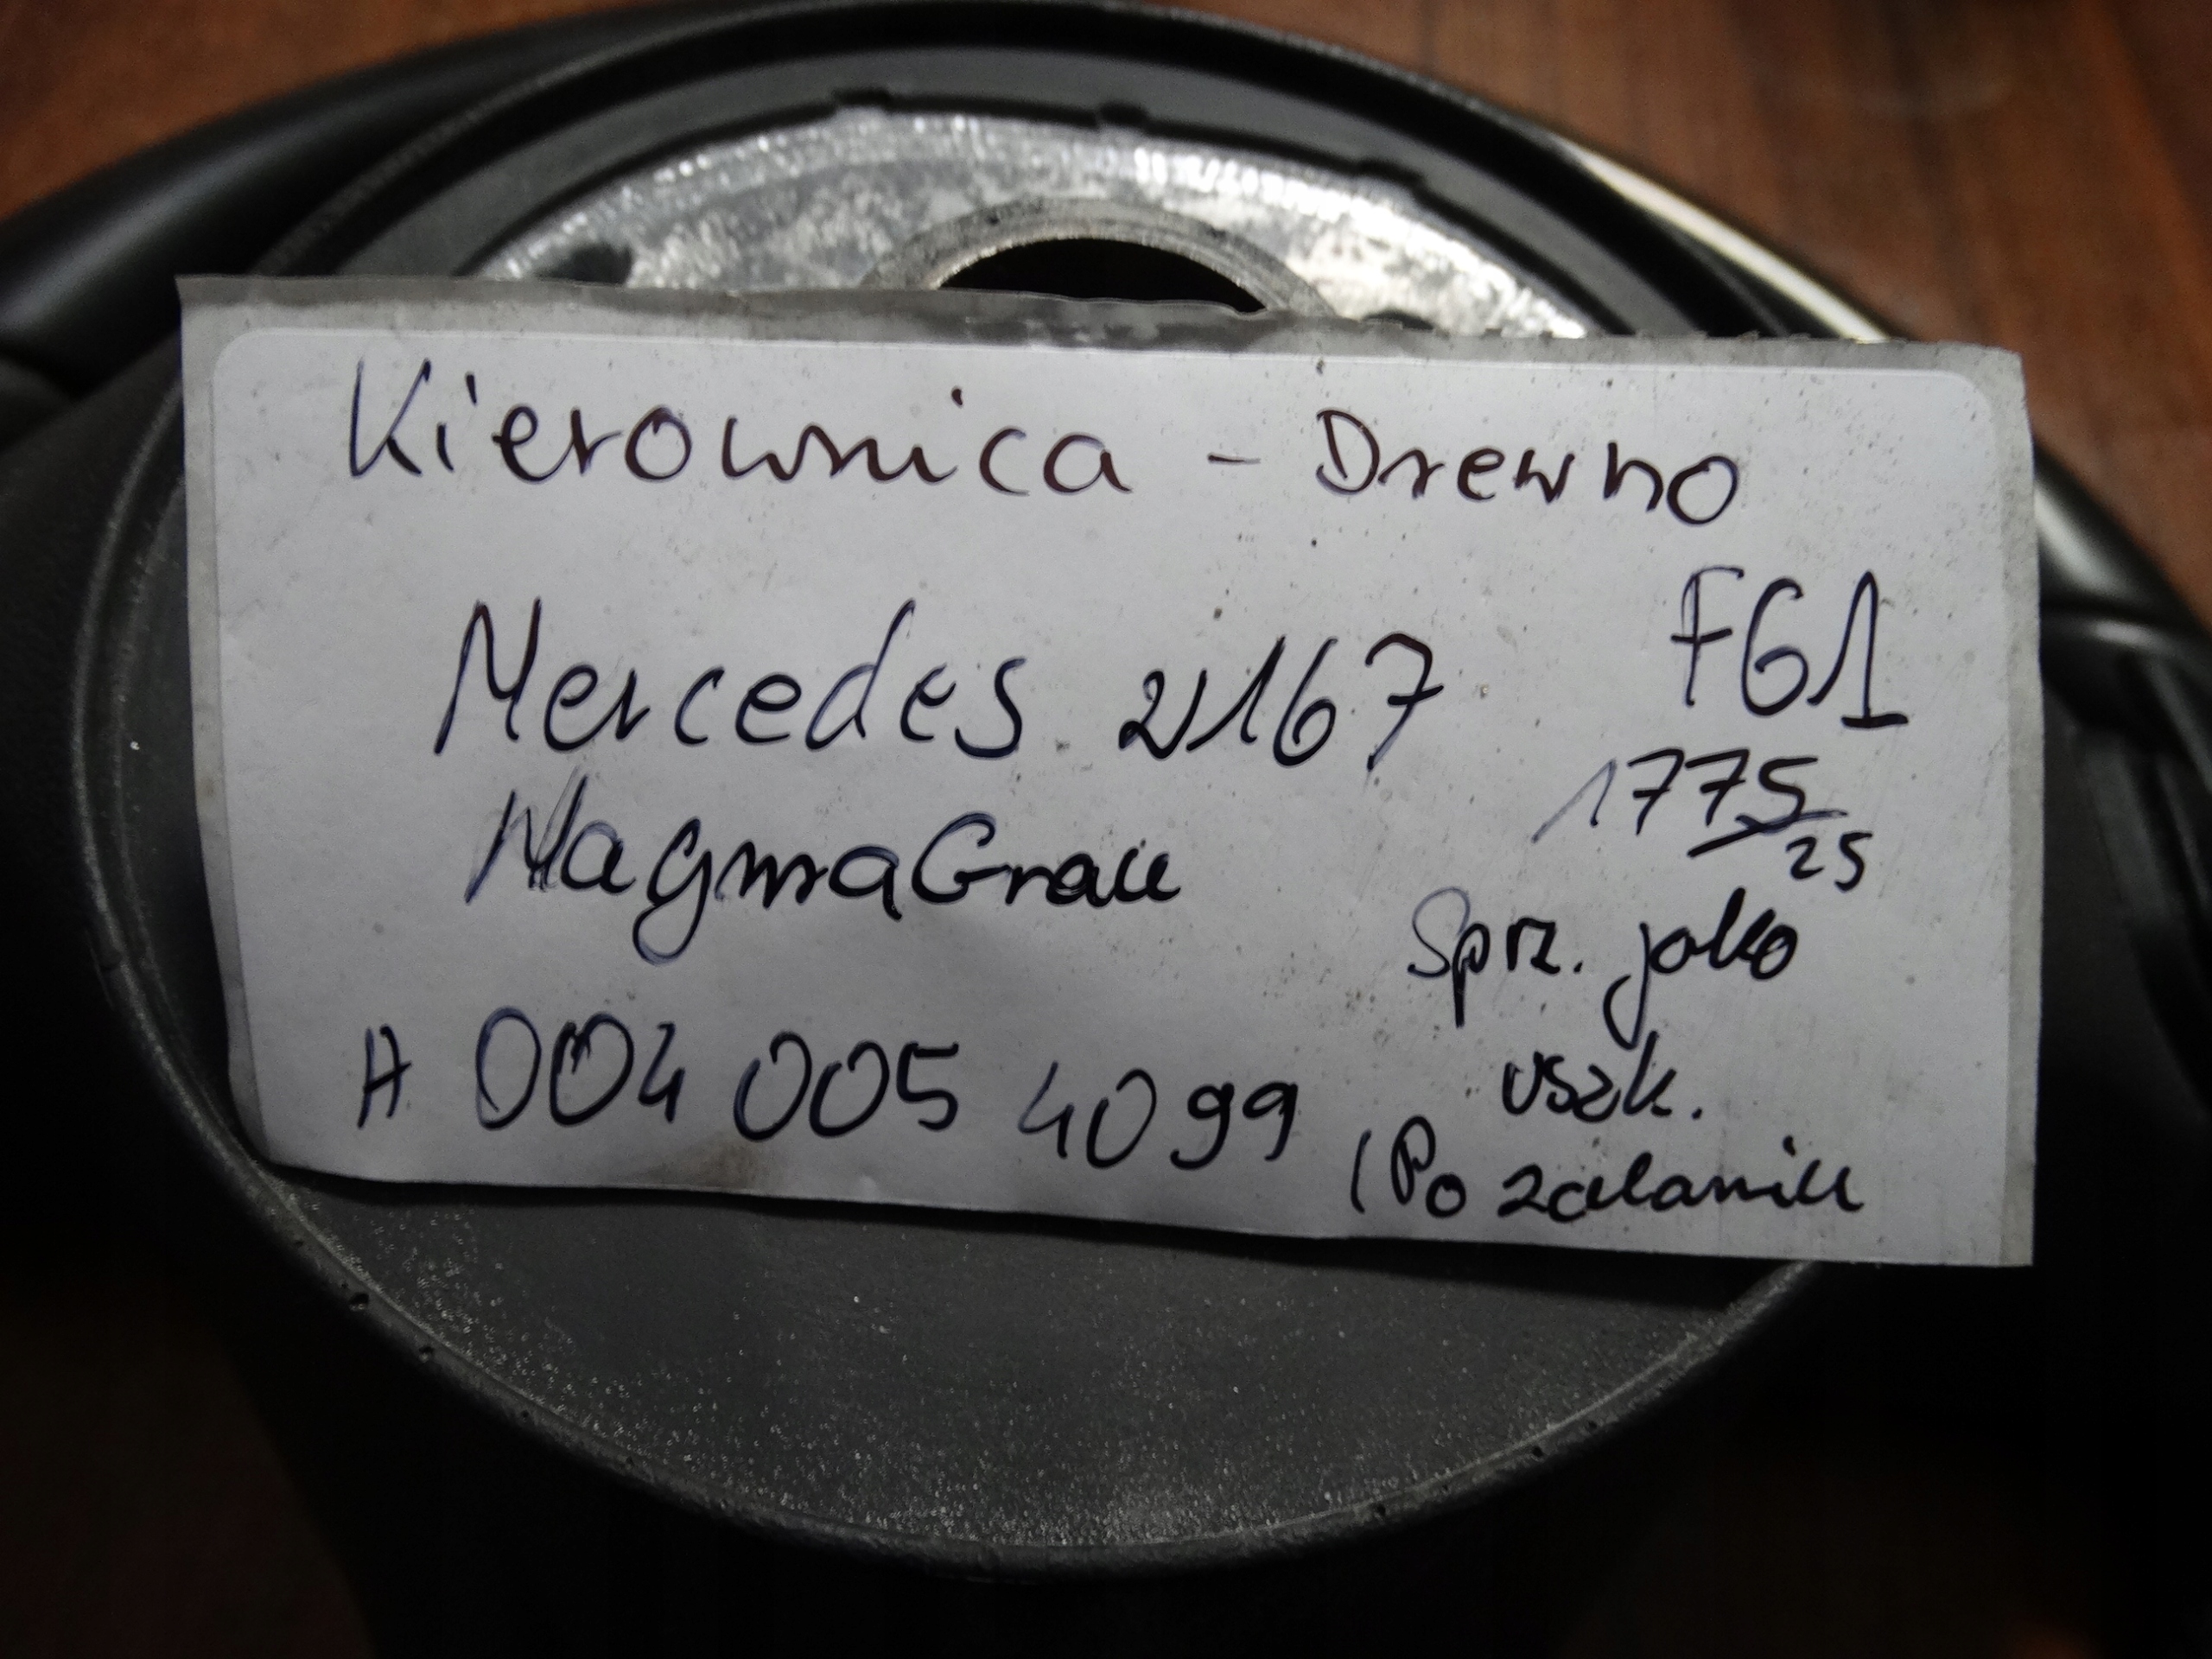 Kierownica - Drewno
Mercedes W167
FG1
MagmaGrau
1775
25
Sprz. jako
uszk.
A 004 005 4099
(Po zalaniu